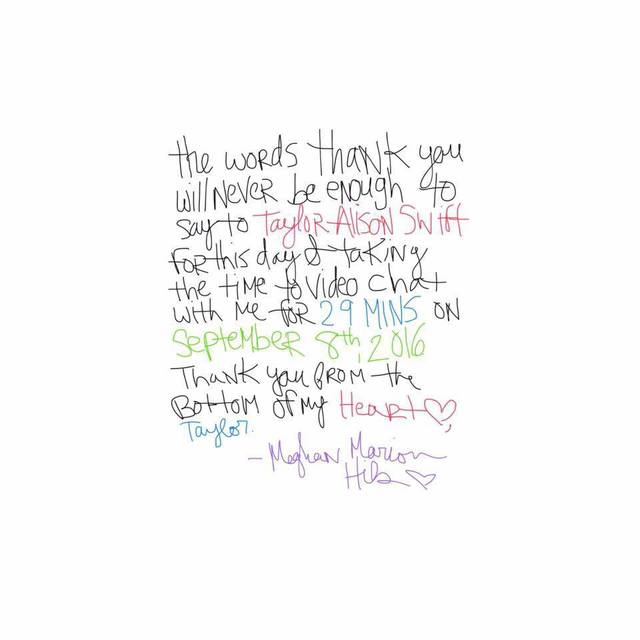 the words thank you
will never be enough to
say to Taylor Alison Swift
for this day & taking
the time to video chat
with me for 29 mins on
September 8th, 2016
Thank you from the
Bottom of my Heart♡,
Taylor.
- Meghan Marion
♡